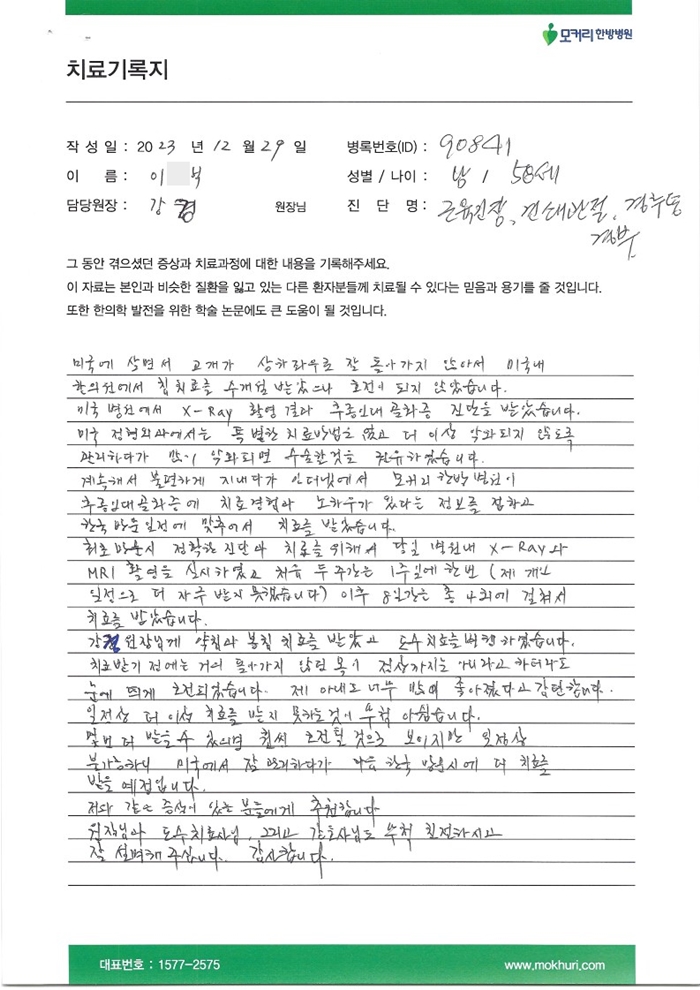 모커리한방병원
치료기록지
작 성 일 : 2023 년 12 월 29 일 병록번호(ID) : 90841
이 름 : 이 석 성별 / 나이 : 남 / 58세
담당원장 : 강 경 원장님 진 단 명 : 근육긴장, 견쇄관절, 경추통
경부
그 동안 겪으셨던 증상과 치료과정에 대한 내용을 기록해주세요.
이 자료는 본인과 비슷한 질환을 잃고 있는 다른 환자분들께 치료될 수 있다는 믿음과 용기를 줄 것입니다.
또한 한의학 발전을 위한 학술 논문에도 큰 도움이 될 것입니다.
미국에 살면서 고개가 상하좌우로 잘 돌아가지 않아서 미국내
한의원에서 침치료를 수개월 받았으나 호전이 되지 않았습니다.
미국 병원에서 X-Ray 촬영 결과 후종인대 골화증 진단을 받았습니다.
미국 정형외과에서는 특별한 치료방법은 없고 더 이상 악화되지 않도록
관리하다가 만일 악화되면 수술할것을 권유하였습니다.
계속해서 불편하게 지내다가 인터넷에서 모커리 한방병원이
후종인대골화증에 치료경험과 노하우가 있다는 정보를 접하고
한국 방문일정에 맞추어서 치료를 받았습니다.
최초 방문시 정확한 진단과 치료를 위해서 당일 병원내 X-Ray와
MRI 촬영을 실시하였고 처음 두 주간은 1주일에 한번 (제 개인
일정으로 더 자주 받지 못했습니다) 이후 8일간은 총 4회에 걸쳐서
치료를 받았습니다.
강경 원장님께 약침과 봉침 치료를 받았고 도수치료를 병행하였습니다.
치료받기 전에는 거의 돌아가지 않던 목이 정상까지는 아니라고 하더라도
눈에 띄게 호전되었습니다. 제 아내도 너무 많이 좋아졌다고 감탄합니다.
일정상 더 이상 치료를 받지 못하는것이 무척 아쉽습니다.
몇번 더 받을 수 있으면 훨씬 호전될 것으로 보이지만 일정상
불가능하니 미국에서 잘 관리하다가 다음 한국 방문시에 더 치료를
받을 예정입니다.
저와 같은 증상이 있는 분들에게 추천합니다
원장님과 도수치료사님, 그리고 간호사님도 무척 친절하시고
잘 설명해 주십니다. 감사합니다.
대표번호 : 1577-2575 www.mokhuri.com